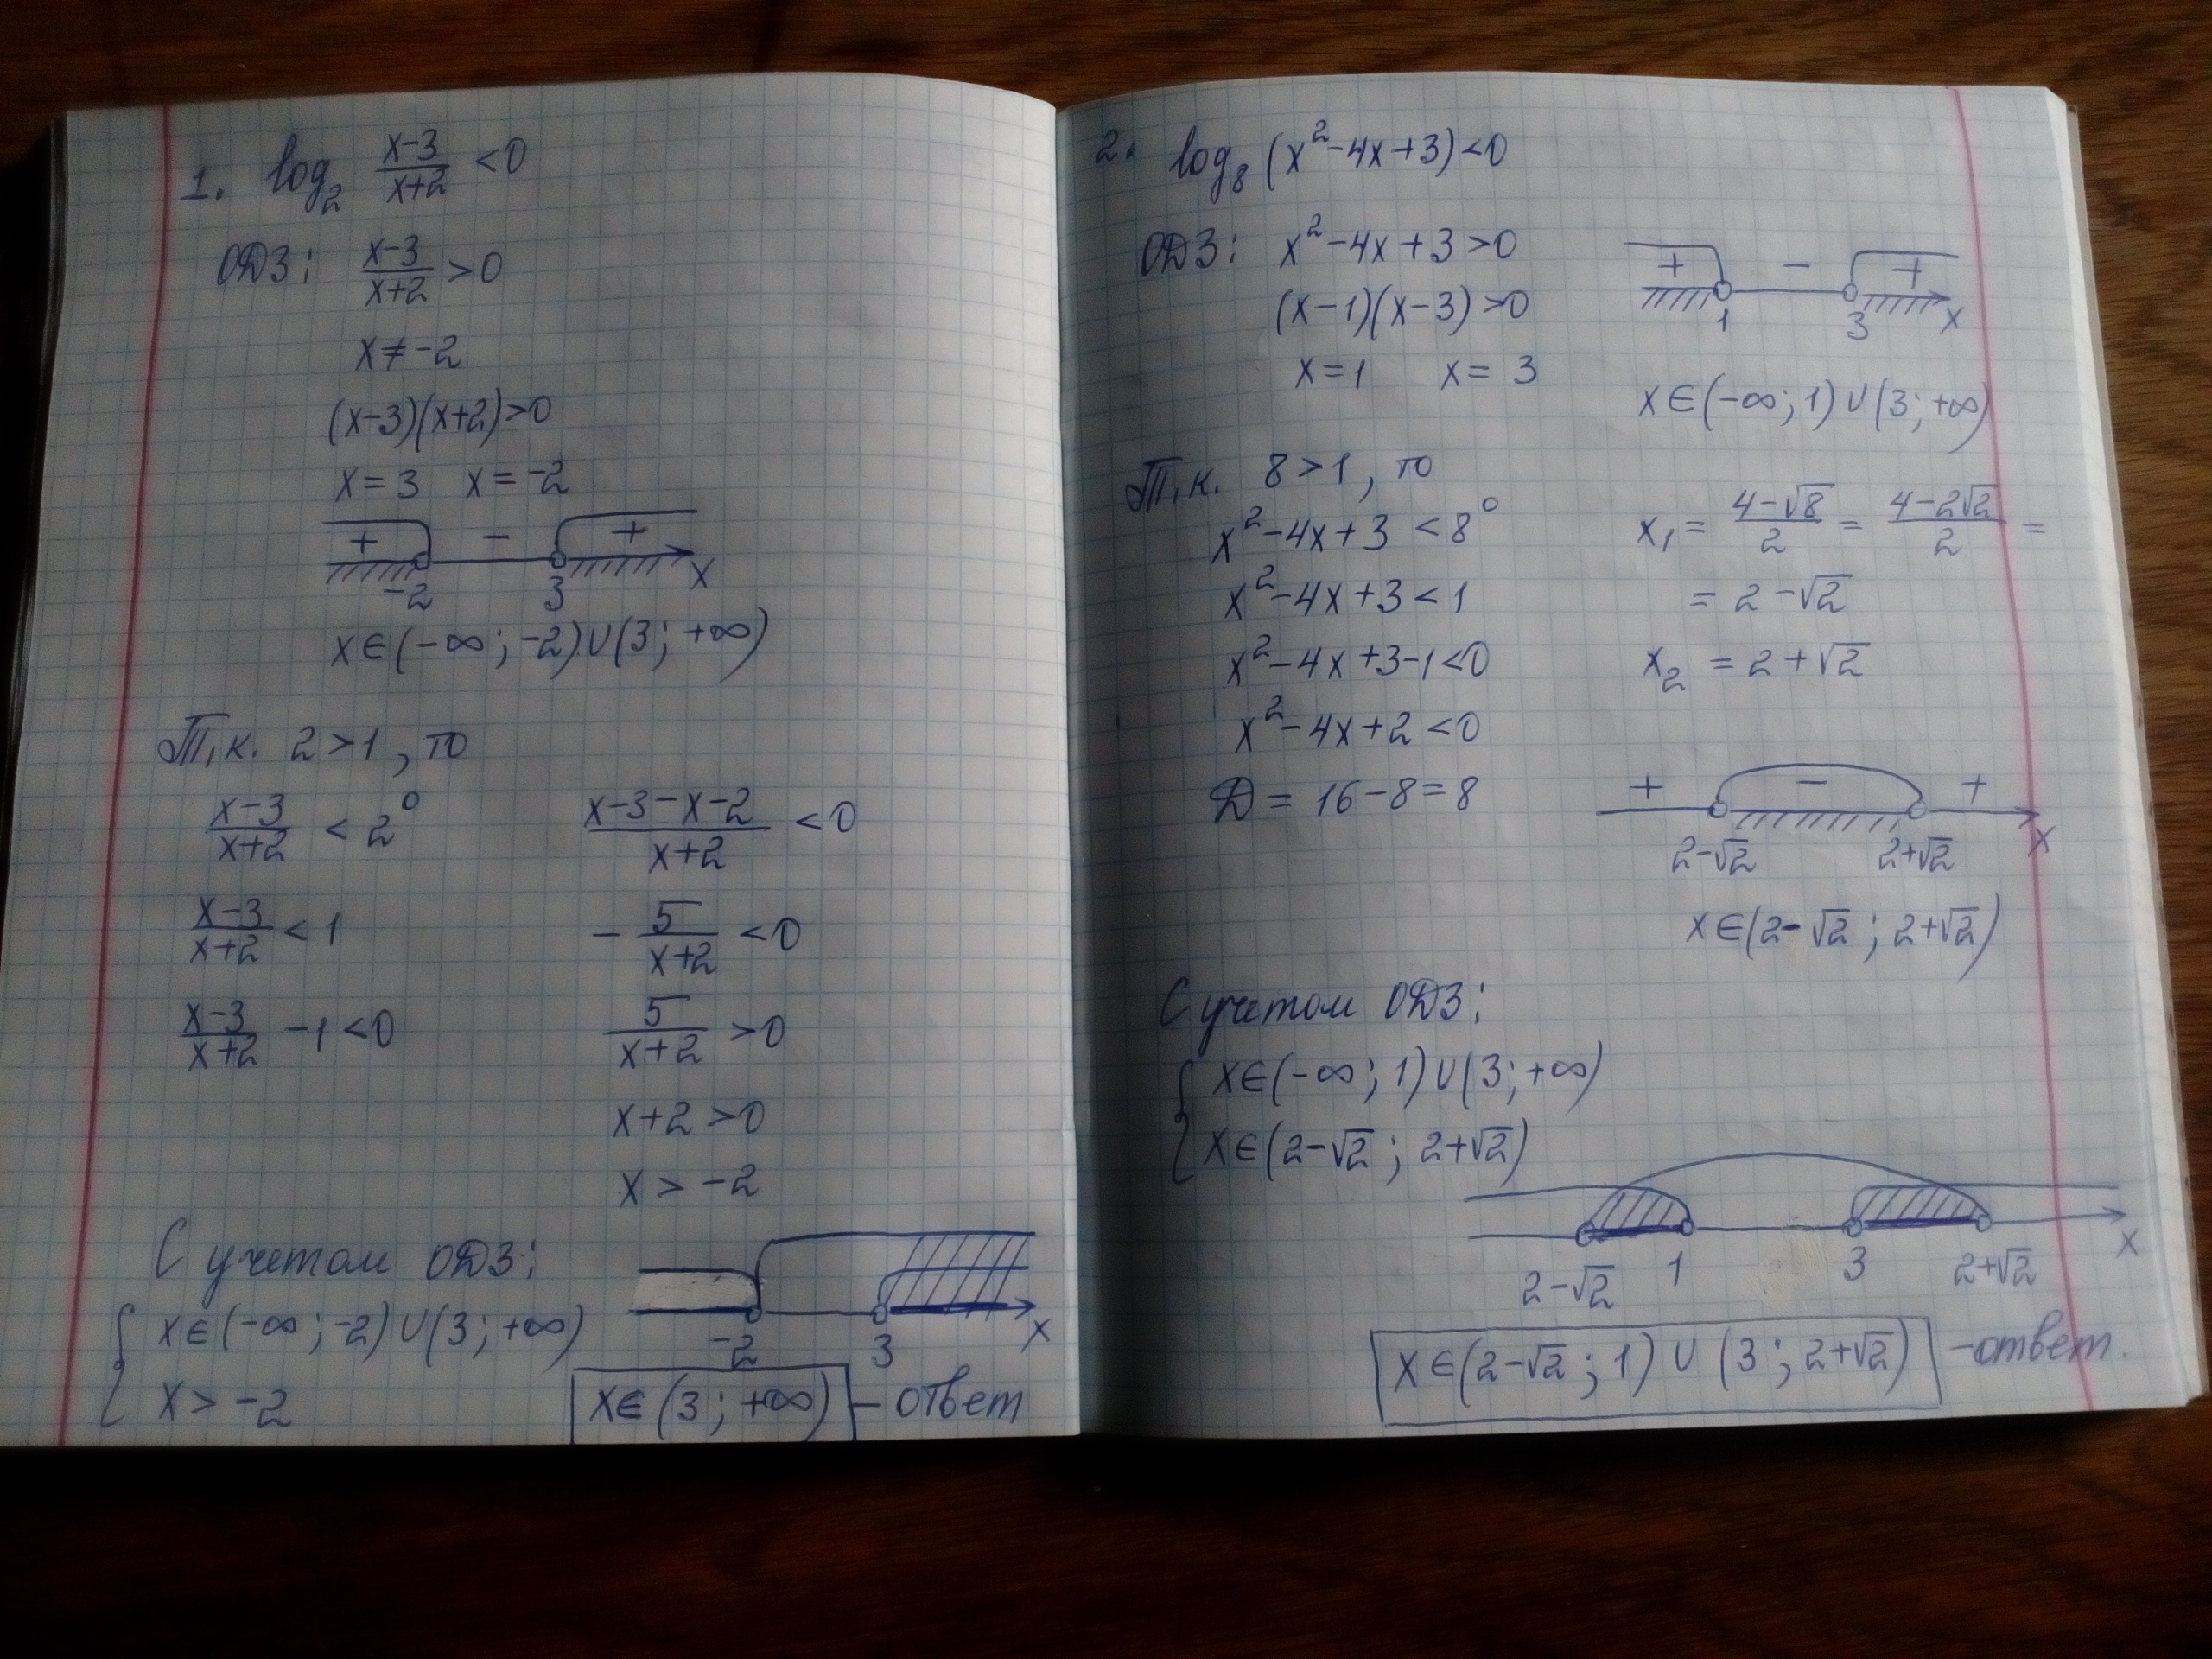 1. log₂ (x-3)/(x+2) < 0
ОДЗ: (x-3)/(x+2) > 0
x ≠ -2
(x-3)(x+2)>0
x = 3 x = -2
+ - +
-2 3 x
x∈(-∞; -2)∪(3; +∞)
Т.к. 2 > 1, то
(x-3)/(x+2) < 2⁰
(x-3)/(x+2) < 1
(x-3)/(x+2) - 1 < 0
(x-3-x-2)/(x+2) < 0
- 5/(x+2) < 0
5/(x+2) > 0
x+2 > 0
x > -2
С учетом ОДЗ:
{ x∈(-∞; -2)∪(3; +∞)
x > -2
-2 3 x
x∈(3; +∞) - ответ
2. log₈ (x²-4x+3)<0
ОДЗ: x²-4x+3>0
(x-1)(x-3)>0
x=1 x=3
+ - +
1 3 x
x∈(-∞; 1)∪(3; +∞)
Т.к. 8>1, то
x²-4x+3 < 8⁰
x²-4x+3 < 1
x²-4x+3-1<0
x²-4x+2<0
Д = 16-8=8
x₁ = (4-√8)/2 = (4-2√2)/2 =
= 2-√2
x₂ = 2+√2
+ - +
2-√2 2+√2 x
x∈(2-√2; 2+√2)
С учетом ОДЗ:
{ x∈(-∞; 1)∪(3; +∞)
x∈(2-√2; 2+√2)
2-√2 1 3 2+√2 x
x∈(2-√2; 1) ∪ (3; 2+√2) - ответ.